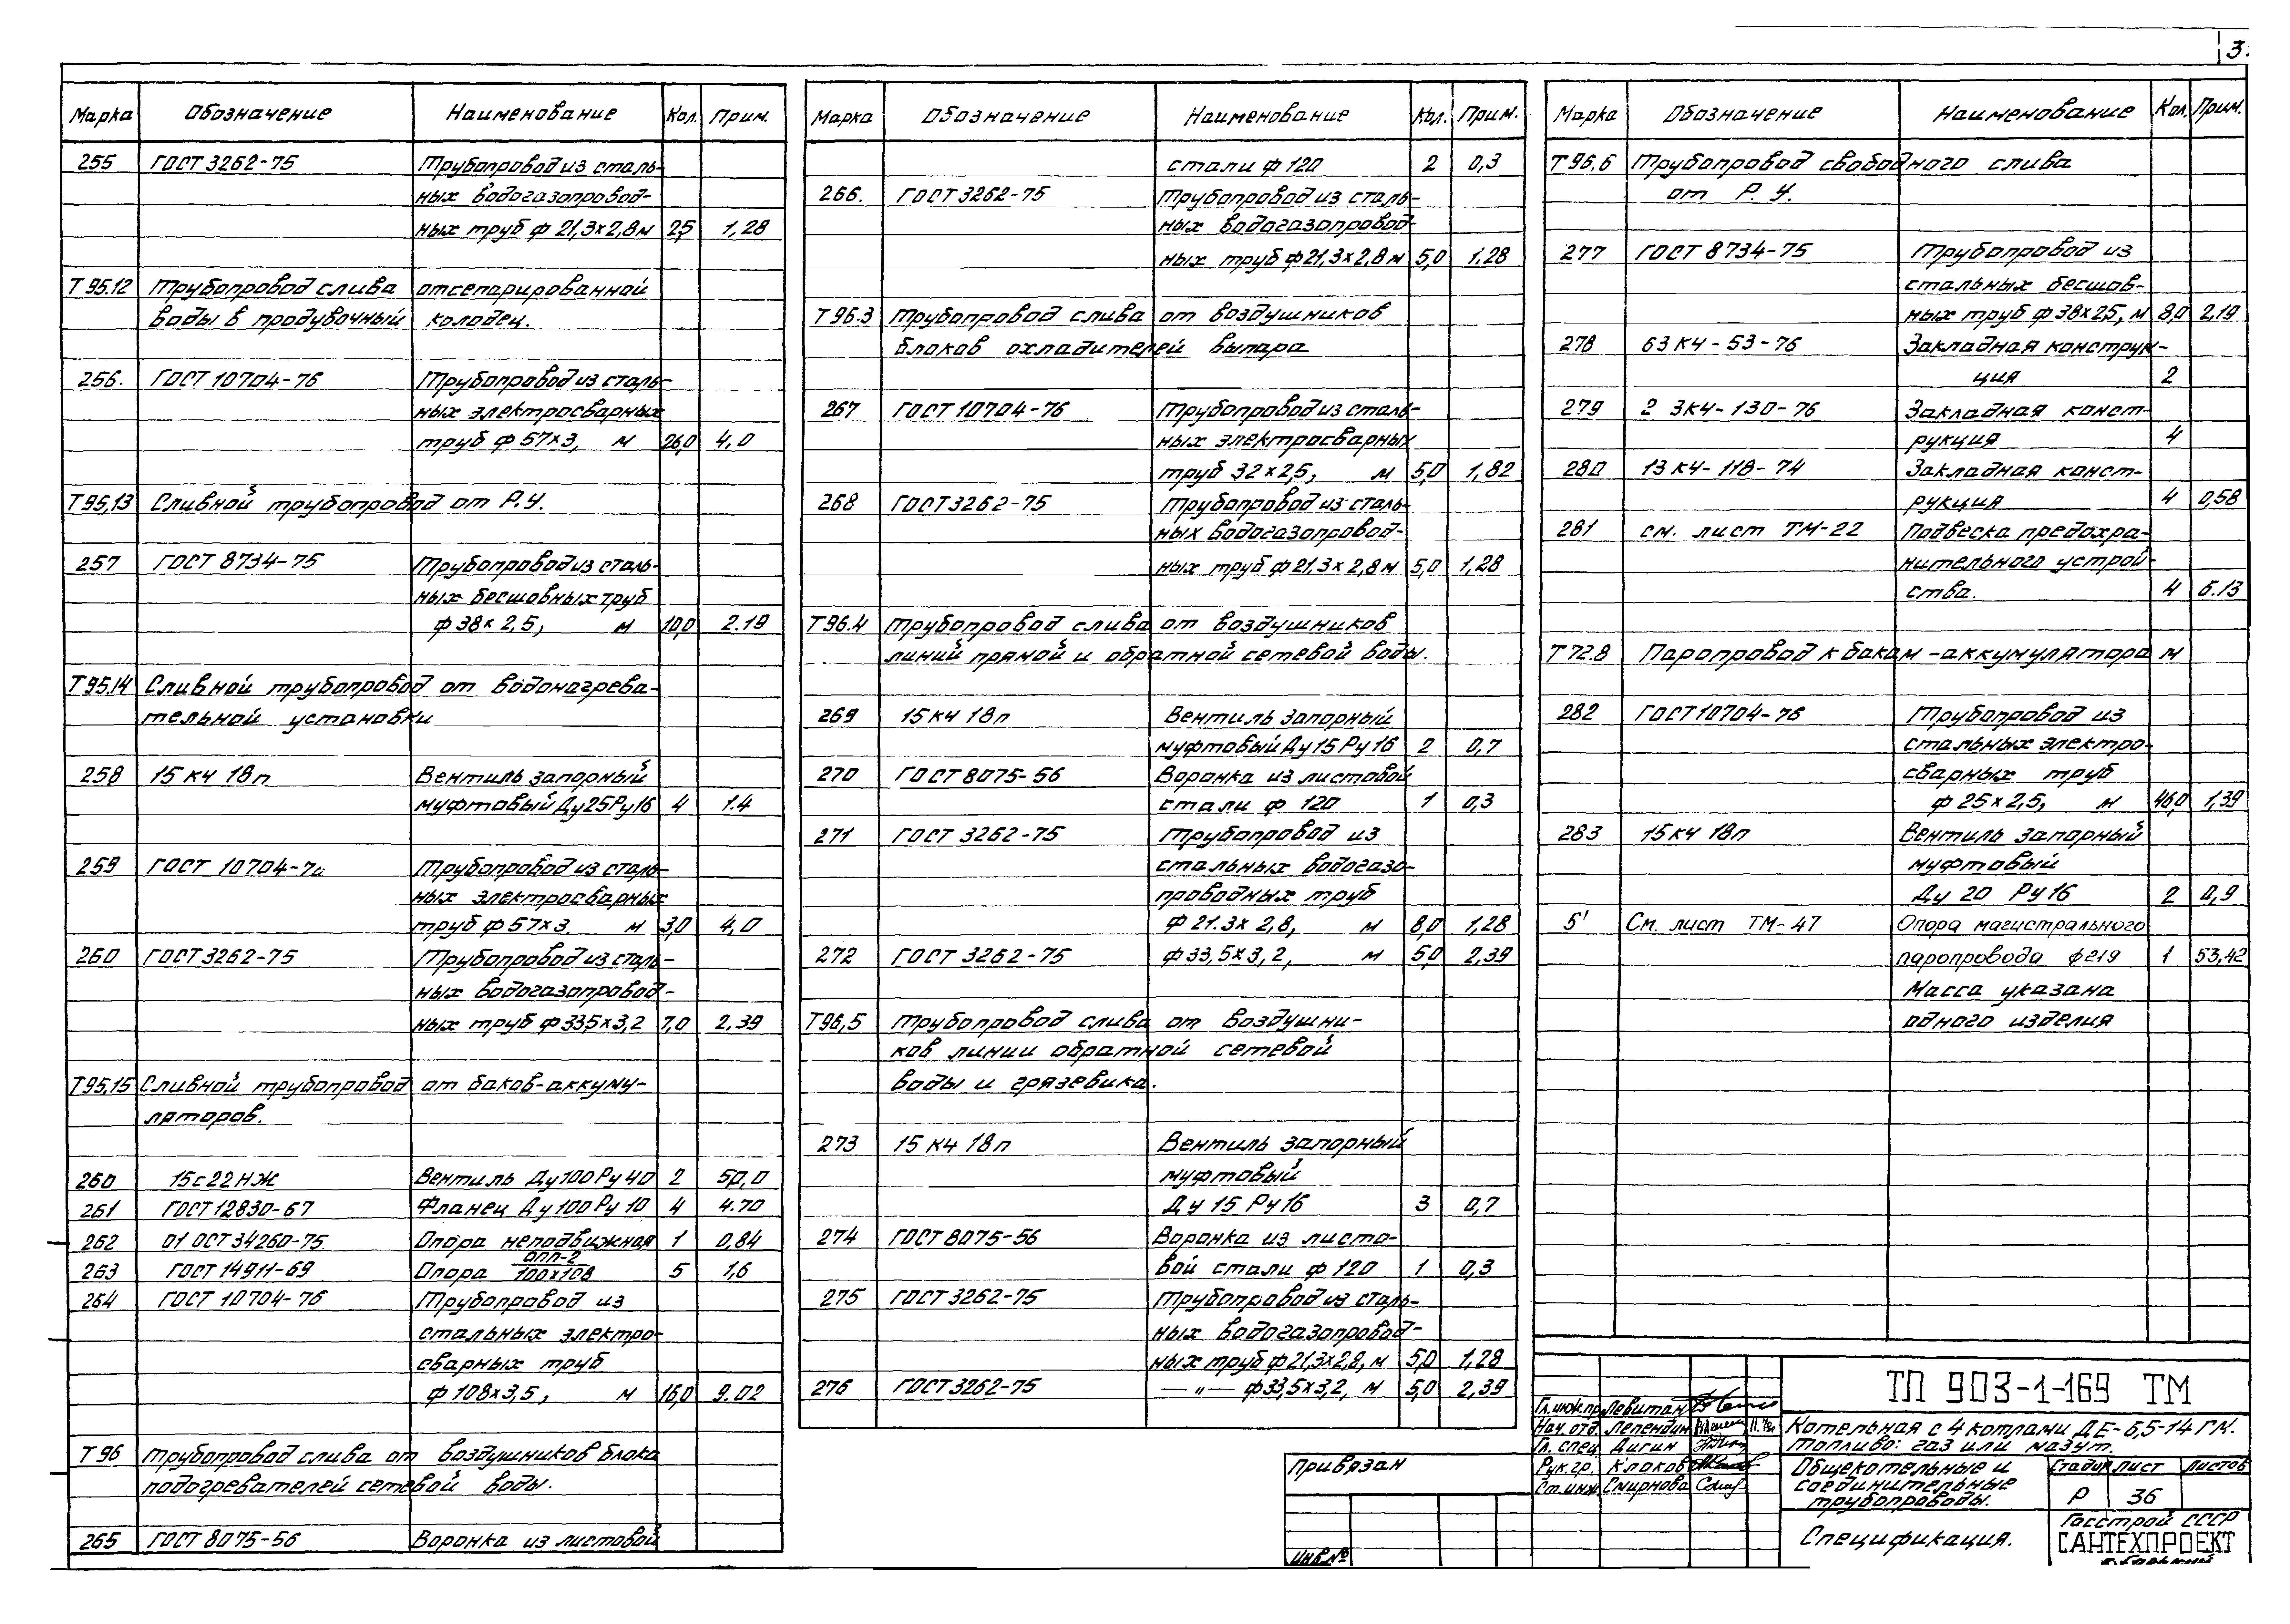 3
Марка Обозначение Наименование Кол. Прим.
255 ГОСТ 3262-75 Трубопровод из сталь-
ных водогазопровод-
ных труб ф 21,3×2,8 м 2,5 1,28
Т 95.12 Трубопровод слива отсепарированной
воды в продувочный колодец.
256. ГОСТ 10704-76 Трубопровод из сталь-
ных электросварных
труб ф 57×3, м 26,0 4,0
Т 95,13 Сливной трубопровод от Р.У.
257 ГОСТ 8734-75 Трубопровод из сталь-
ных бесшовных труб
ф 38×2,5, м 10,0 2.19
Т 95.14 Сливной трубопровод от водонагрева-
тельной установки
258 15 кч 18п Вентиль запорный
муфтовый Ду 25 Ру 16 4 1.4
259 ГОСТ 10704-76 Трубопровод из сталь-
ных электросварных
труб ф 57×3. м 3,0 4,0
260 ГОСТ 3262-75 Трубопровод из сталь-
ных водогазопровод-
ных труб ф 33,5×3,2 7,0 2,39
Т 95,15 Сливной трубопровод от баков-аккуму-
ляторов.
260 15с22нж Вентиль Ду 100 Ру 40 2 50,0
261 ГОСТ 12830-67 Фланец Ду 100 Ру 10 4 4.70
262 01 ОСТ 34260-75 Опора неподвижная 1 0,84
263 ГОСТ 14911-69 Опора ОПП-2/100×108 5 1,6
264 ГОСТ 10704-76 Трубопровод из
стальных электро-
сварных труб
ф 108×3,5, м 16,0 9.02
Т 96 Трубопровод слива от воздушников блока
подогревателей сетевой воды.
265 ГОСТ 8075-56 Воронка из листовой
Марка Обозначение Наименование Кол. Прим.
стали ф 120 2 0,3
266. ГОСТ 3262-75 Трубопровод из сталь-
ных водогазопровод-
ных труб ф 21,3×2,8 м 5,0 1,28
Т 96.3 Трубопровод слива от воздушников
блоков охладителей выпара
267 ГОСТ 10704-76 Трубопровод из сталь-
ных электросварных
труб 32×2,5, м 5,0 1,82
268 ГОСТ 3262-75 Трубопровод из сталь-
ных водогазопровод-
ных труб ф 21,3×2,8 м 5,0 1,28
Т 96.4 Трубопровод слива от воздушников
линий прямой и обратной сетевой воды.
269 15 кч 18п Вентиль запорный
муфтовый Ду 15 Ру 16 2 0,7
270 ГОСТ 8075-56 Воронка из листовой
стали ф 120 1 0,3
271 ГОСТ 3262-75 Трубопровод из
стальных водогазо-
проводных труб
ф 21.3×2,8, м 8,0 1,28
272 ГОСТ 3262-75 ф 33,5×3,2, м 5,0 2,39
Т 96,5 Трубопровод слива от воздушни-
ков линии обратной сетевой
воды и грязевика.
273 15 кч 18п Вентиль запорный
муфтовый
Ду 15 Ру 16 3 0,7
274 ГОСТ 8075-56 Воронка из листо-
вой стали ф 120 1 0,3
275 ГОСТ 3262-75 Трубопровод из сталь-
ных водогазопровод-
ных труб ф 21,3×2,8, м 5,0 1,28
276 ГОСТ 3262-75 —"— ф 33,5×3,2, м 5,0 2,39
Марка Обозначение Наименование Кол. Прим.
Т 96,6 Трубопровод свободного слива
от Р. У.
277 ГОСТ 8734-75 Трубопровод из
стальных бесшов-
ных труб ф 38×2,5, м 8,0 2,19
278 63 кч-53-76 Закладная конструк-
ция 2
279 2 3кч-130-76 Закладная конст-
рукция 4
280 13 кч-118-74 Закладная конст-
рукция 4 0,58
281 см. лист ТМ-22 Подвеска предохра-
нительного устрой-
ства. 4 6.13
Т 72.8 Паропровод к бакам-аккумулятора м
282 ГОСТ 10704-76 Трубопровод из
стальных электро-
сварных труб
ф 25×2,5, м 46,0 1,39
283 15 кч 18п Вентиль запорный
муфтовый
Ду 20 Ру 16 2 0,9
5' См. лист ТМ-47 Опора магистрального
паропровода ф 219 1 53,42
Масса указана
одного изделия
ТП 903-1-169 ТМ
Гл.инж.пр Левитан
Нач. отд. Лепендин
Гл. спец Дигин
Рук. гр. Клоков
Ст. инж. Смирнова
Котельная с 4 котлами ДЕ-6,5-14 ГМ.
Топливо: газ или мазут.
Общекотельные и
соединительные
трубопроводы.
Стадия Лист Листов
Р 36
Спецификация.
Госстрой СССР
САНТЕХПРОЕКТ
Привязан
Инв.№